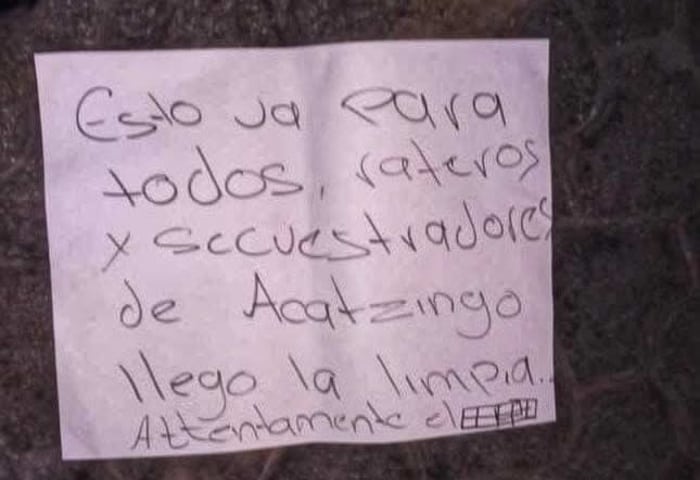 Esto va para
todos, rateros
y secuestradores
de Acatzingo
llego la limpia..
Attentamente el